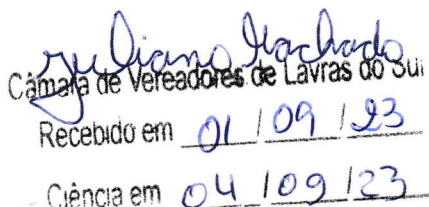 Juliano Machado
Câmara de Vereadores de Lavras do Sul
Recebido em 01 / 09 / 23
Ciência em 04 / 09 / 23